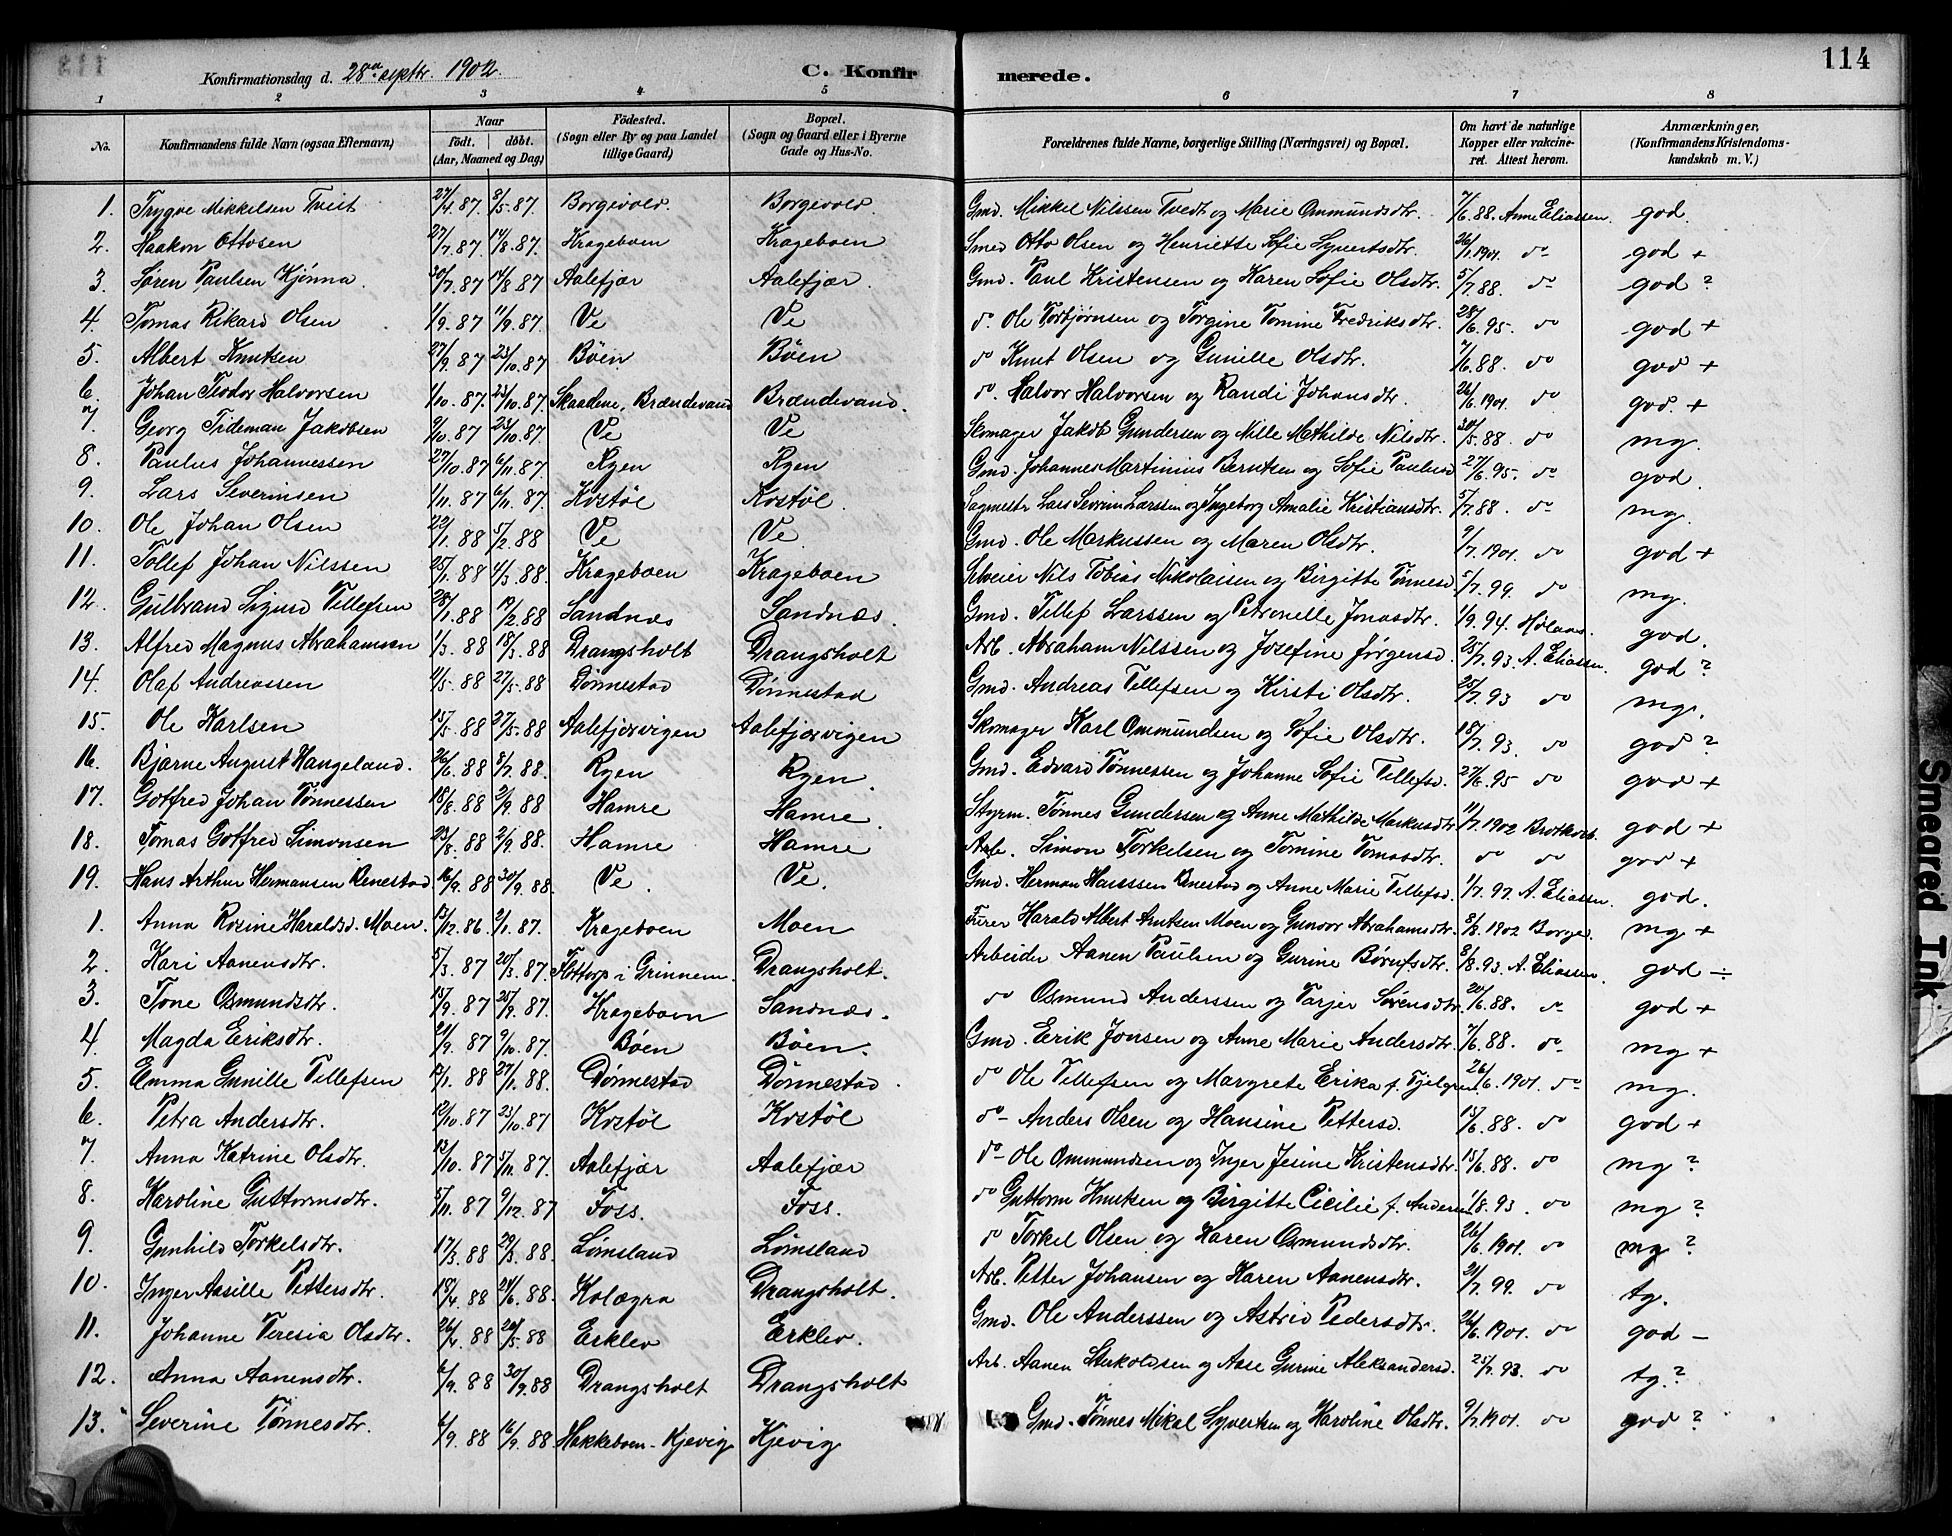 114
Konfirmationsdag d. 28de septbr. 1902. C. Konfirmerede.
1 2 3 4 5 6 7 8
No. Konfirmandens fulde Navn (ogsaa Efternavn) Naar født. døbt. (Aar, Maaned og Dag) Födested. (Sogn eller By og paa Landet tillige Gaard) Bopæl. (Sogn og Gaard eller i Byerne Gade og Hus-No. Forældrenes fulde Navne, borgerlige Stilling (Næringsvei) og Bopæl. Om havt de naturlige Kopper eller vakcineret. Attest herom. Anmærkninger, (Konfirmandens Kristendomskundskab m. V.)
1. Trygve Mikkelsen Tveit 27/4.87. 8/5.87. Borgevold. Borgevold. Gmd. Mikkel Nilssen Tvedt og Marie Ommundsdtr. 7/6.88. Anne Eliassen. god.
2. Haakon Ottosen 27/7.87. 14/8.87. Krageboen Krageboen Smed Otto Olsen og Henriette Sofie Syvertsdtr. 26/1.1901. do god +
3. Søren Paulsen Kjønna 30/7.87 14/8 87 Aalefjær Aalefjær. Gmd. Paul Kristensen og Karen Sofie Olsdtr. 5/7.88. do god ?
4. Tomas Rikard Olsen 1/9.87 11/9.87. Ve Ve do. Ole Torbjørnsen og Torgine Tomine Fredriksdtr. 28/6.95. do god +
5. Albert Knutsen 27/9.87 23/10.87 Böen Böen do Knut Olsen og Gunille Olsdtr. 7/6.88. do god +
6. Johan Teodor Halvorsen 1/10.87. 23/10.87. Skaadene, Brændevand Brændevand. do. Halvor Halvorsen og Randi Johansdtr. 26/6.1901. do god. +
7. Georg Tideman Jakobsen 9/10.87 23/10.87. Ve Ve Skomager Jakob Gundersen og Nille Mathilde Nilsdtr. 30/5.88. do mg.
8. Paulus Johannessen 27/10.87 6/11.87. Ryen Ryen Gmd. Johannes Martinius Berntsen og Sofie Paulusd 27/6.95. do god.
9. Lars Severinsen 1/11.87 6/11.87. Kostöl Kostöl. Sagmestr Lars Severin Larssen og Ingeborg Amalie Kristiansdtr. 5/7.88. do mg.
10. Ole Johan Olsen 22/1.88 5/2.88 Ve Ve. Gmd. Ole Markussen og Maren Olsdtr. 9/7.1901. do god +
11. Tollef Johan Nilssen 25/1.88 4/3.88. Krageboen Krageboen Nils Tobias Nikolaisen og Birgitte Tønnesd. 5/7.99. do mg.
12. Gulbrand Sigurd Tillefsen 28/1.88 19/2.88 Sandnæs Sandnæs. Gmd. Tillef Larssen og Petronelle Jonasdtr. 1/9.94. god.
13. Alfred Magnus Abrahamsen 1/3.88 18/3.88 Drangsholt Drangsholt Arb. Abraham Nilssen og Josefine Jørgensd. 25/7.93. A. Eliassen. god ?
14. Olaf Andreassen 9/5.88 27/5.88 Dönnestad Dönnestad Gmd. Andreas Tillefsen og Kirsti Olsdtr. 25/7.93 do mg.
15. Ole Karlsen 15/5.88 27/5.88 Aalefjærvigen Aalefjærvigen Skomager Karl Ommundsen og Sofie Olsdtr. 18/7.93. do god ?
16. Bjarne August Hangeland. 26/6.88 8/7.88. Ryen Ryen. Gmd. Edvard Tönnessen og Johanne Sofie Tillefsd. 27/6.95 do god +
17. Gotfred Johan Tönnessen 18/8.88 2/9.88 Hamre Hamre. Styrm. Tönnes Gundersen og Anne Mathilde Markusdtr 11/7.1902 god +
18. Tomas Gotfred Simonsen 23/8.88 2/9.88. Hamre Hamre Arb. Simon Torkelsen og Tomine Tomasdtr. do do god +
19. Hans Arthur Hermansen Renestad 16/9.88 30/9.88. Ve. Ve. Gmd. Herman Hanssen Renestad og Anne Marie Tillefsd. 1/7.97. A. Eliassen. god.
1. Anna Rosine Haraldsd. Moen. 13/12.86. 2/1.87. Krageboen Moen Furer Harald Albert Knutsen Moen og Gunvor Abrahamsdtr. 8/2.1902 Borge. mg +
2. Kari Aanensdtr. 5/3.87 20/3.87. Flottorp i Grinnem. Drangsholt. Arbeider Aanen Paulsen og Gurine Börufsdtr. 8/8.93. A. Eliassen. god ÷
3. Tone Osmundsdtr. 15/9.87 25/9.87. Krageboen Sandnæs. do Osmund Anderssen og Tarjer Sörensdtr. 20/6.88. do god +
4. Magda Eriksdtr. 21/9.87 9/10.87. Böen Böen. Gmd. Erik Jonsen og Anne Marie Andersdtr. 7/6.88. do mg +
5. Emma Gunille Tillefsen 12/1.88 27/1.88. Dönnestad Dönnestad. do Ole Tillefsen og Margrete Erika f. Fjelgren. 26/6.1901. do mg.
6. Petra Andersdtr. 12/10.87 23/10.87 Kostöl Kostöl do Anders Olsen og Hansine Pettersd. 15/6.88. do god +
7. Anna Katrine Olsdtr. 12/10.87 5/11.87. Aalefjær Aalefjær do Ole Ommundsen og Inger Jesine Kristensdtr. 15/6.88. do mg ?
8. Karoline Guttormsdtr. 5/11.87 9/12.87 Foss. Foss. do Guttorm Knutsen og Birgitte Cicilie f. Andersen 1/8.93. do mg ?
9. Gunhild Torkelsdtr. 17/3.88 29/3.88. Lömsland Lömsland do Torkel Olsen og Karen Osmundsdtr. 26/6.1901. do mg ?
10. Inger Aasille Pettersdtr. 18/4.88 24/6.88. Kolægra Drangsholt. Arb. Petter Johansen og Karen Aanensdtr. 21/7.99. do tg.
11. Johanne Teresia Olsdtr. 26/4.88 20/5.88 Erklev Erklev. Gmd. Ole Anderssen og Astrid Pedersdtr. 26/6.1901. do god –
12. Anna Aanensdtr. 6/9.88 30/9.88 Drangsholt Drangsholt Arb. Aanen Stenkoldsen og Aase Gurine Aleksandersd. 25/7.93. do tg. ?
13. Severine Tönnesdtr. 6/9.88 16/9.88 Hakkeboen - Kjevig Kjevig Gmd. Tönnes Mikel Syvertsen og Karoline Olsdtr. 9/7.1901. do god ?
Smeared Ink